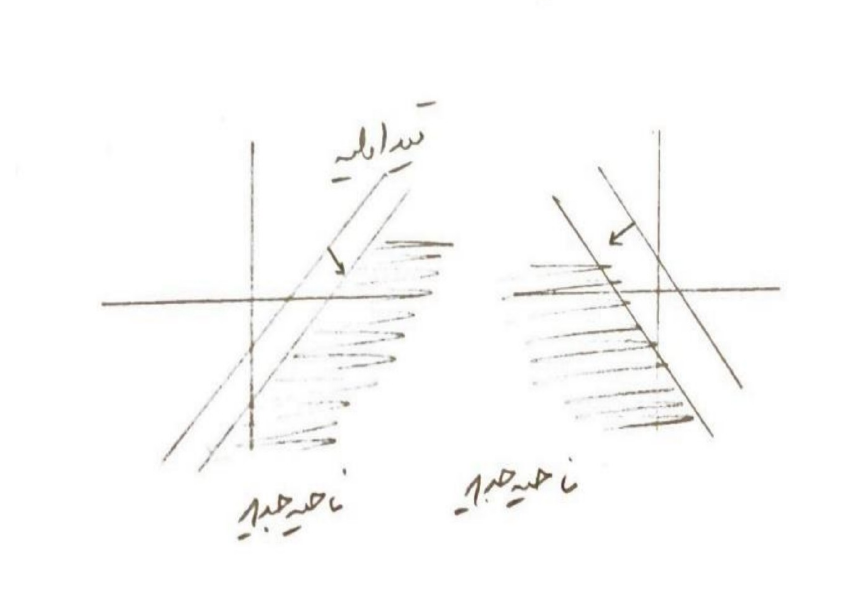 قید اولیه
ناحیه جدید
ناحیه جدید